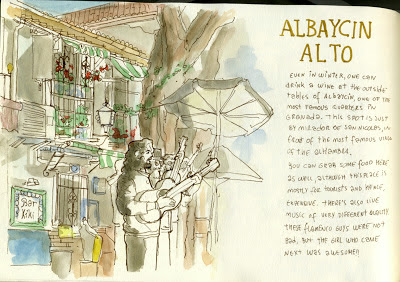 ALBAYCIN
ALTO
EVEN IN WINTER, ONE CAN
DRINK A WINE AT THE OUTSIDE
TABLES OF ALBAYCÍN, ONE OF THE
MOST FAMOUS QUARTERS IN
GRANADA. THIS SPOT IS JUST
BY MIRADOR DE SAN NICOLAS, IN
FRONT OF THE MOST FAMOUS VIEW
OF THE ALHAMBRA.
YOU CAN GRAB SOME FOOD HERE
AS WELL, ALTHOUGH THIS PLACE IS
MOSTLY FOR TOURISTS AND HENCE,
EXPENSIVE. THERE'S ALSO LIVE
MUSIC OF VERY DIFFERENT QUALITY.
THESE FLAMENCO GUYS WERE NOT
BAD, BUT THE GIRL WHO CAME
NEXT WAS AWESOME!!
Bar
Kiki